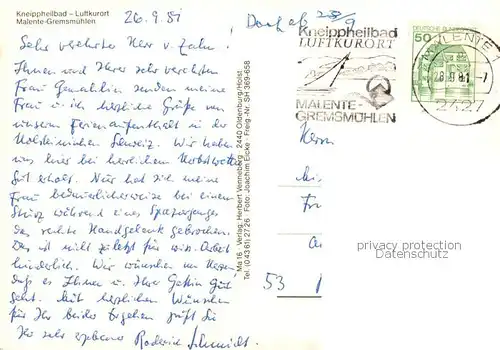 Kneippheilbad – Luftkurort
Malente-Gremsmühlen
26.9.81
Sehr verehrter Herr v. Zahn!
Ihnen und Ihrer sehr verehrten
Frau Gemahlin senden meine
Frau u. ich herzliche Grüße von
unserem Ferienaufenthalt in der
Holsteinischen Schweiz. Wir haben
uns hier bei herrlichem Herbstwetter
gut erholt. Nur hat sich meine
Frau bedauerlicherweise bei einem
Sturz während eines Spazierganges
das rechte Handgelenk gebrochen.
Das ist nicht zuletzt für wiss. Arbeit
hinderlich. Wir wünschen u. hoffen,
daß es Ihnen u. Ihrer Gattin gut
geht. Mit herzlichen Wünschen
für Ihr beider Ergehen grüßt Sie
Ihr sehr ergebener Roderich Schmidt.
Ma 16 Verlag: Herbert Venneberg 2440 Oldenburg/Holst
Tel. (0 43 61) 27 26 Foto: Joachim Eicke - Freig.-Nr. SH 369-658
Kneippheilbad
LUFTKURORT
MALENTE-
GREMSMÜHLEN
MALENTE 1
28.9.81 -7
2427
DEUTSCHE BUNDESPOST
50
Herrn
Fr
53
privacy protection
Datenschutz